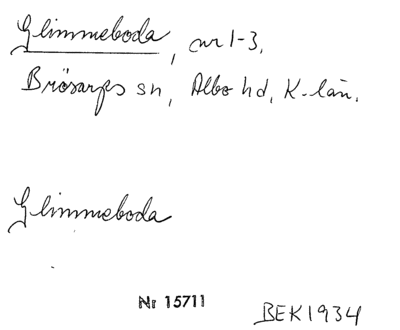 Glimmeboda, nr 1-3.
Brösarps sn, Albo hd, K-län.
Glimmeboda
Nr 15711
BEK 1934